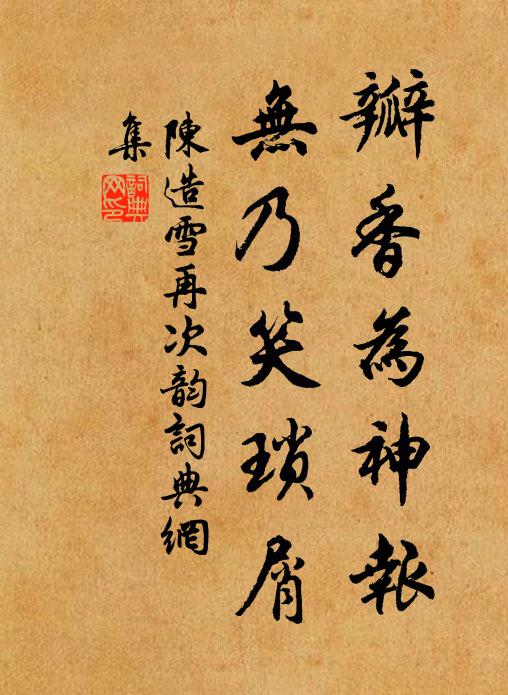 瓣香為神報
無乃笑瑣屑
陳造雪再次韵詞典網
集
詞典
网印